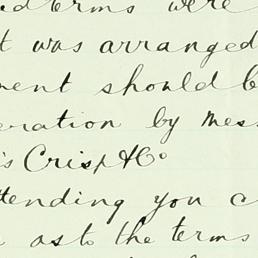 d terms were
t was arranged
ment should b
eration by Mess
is Crisp & Co
ttending you c
as to the terms